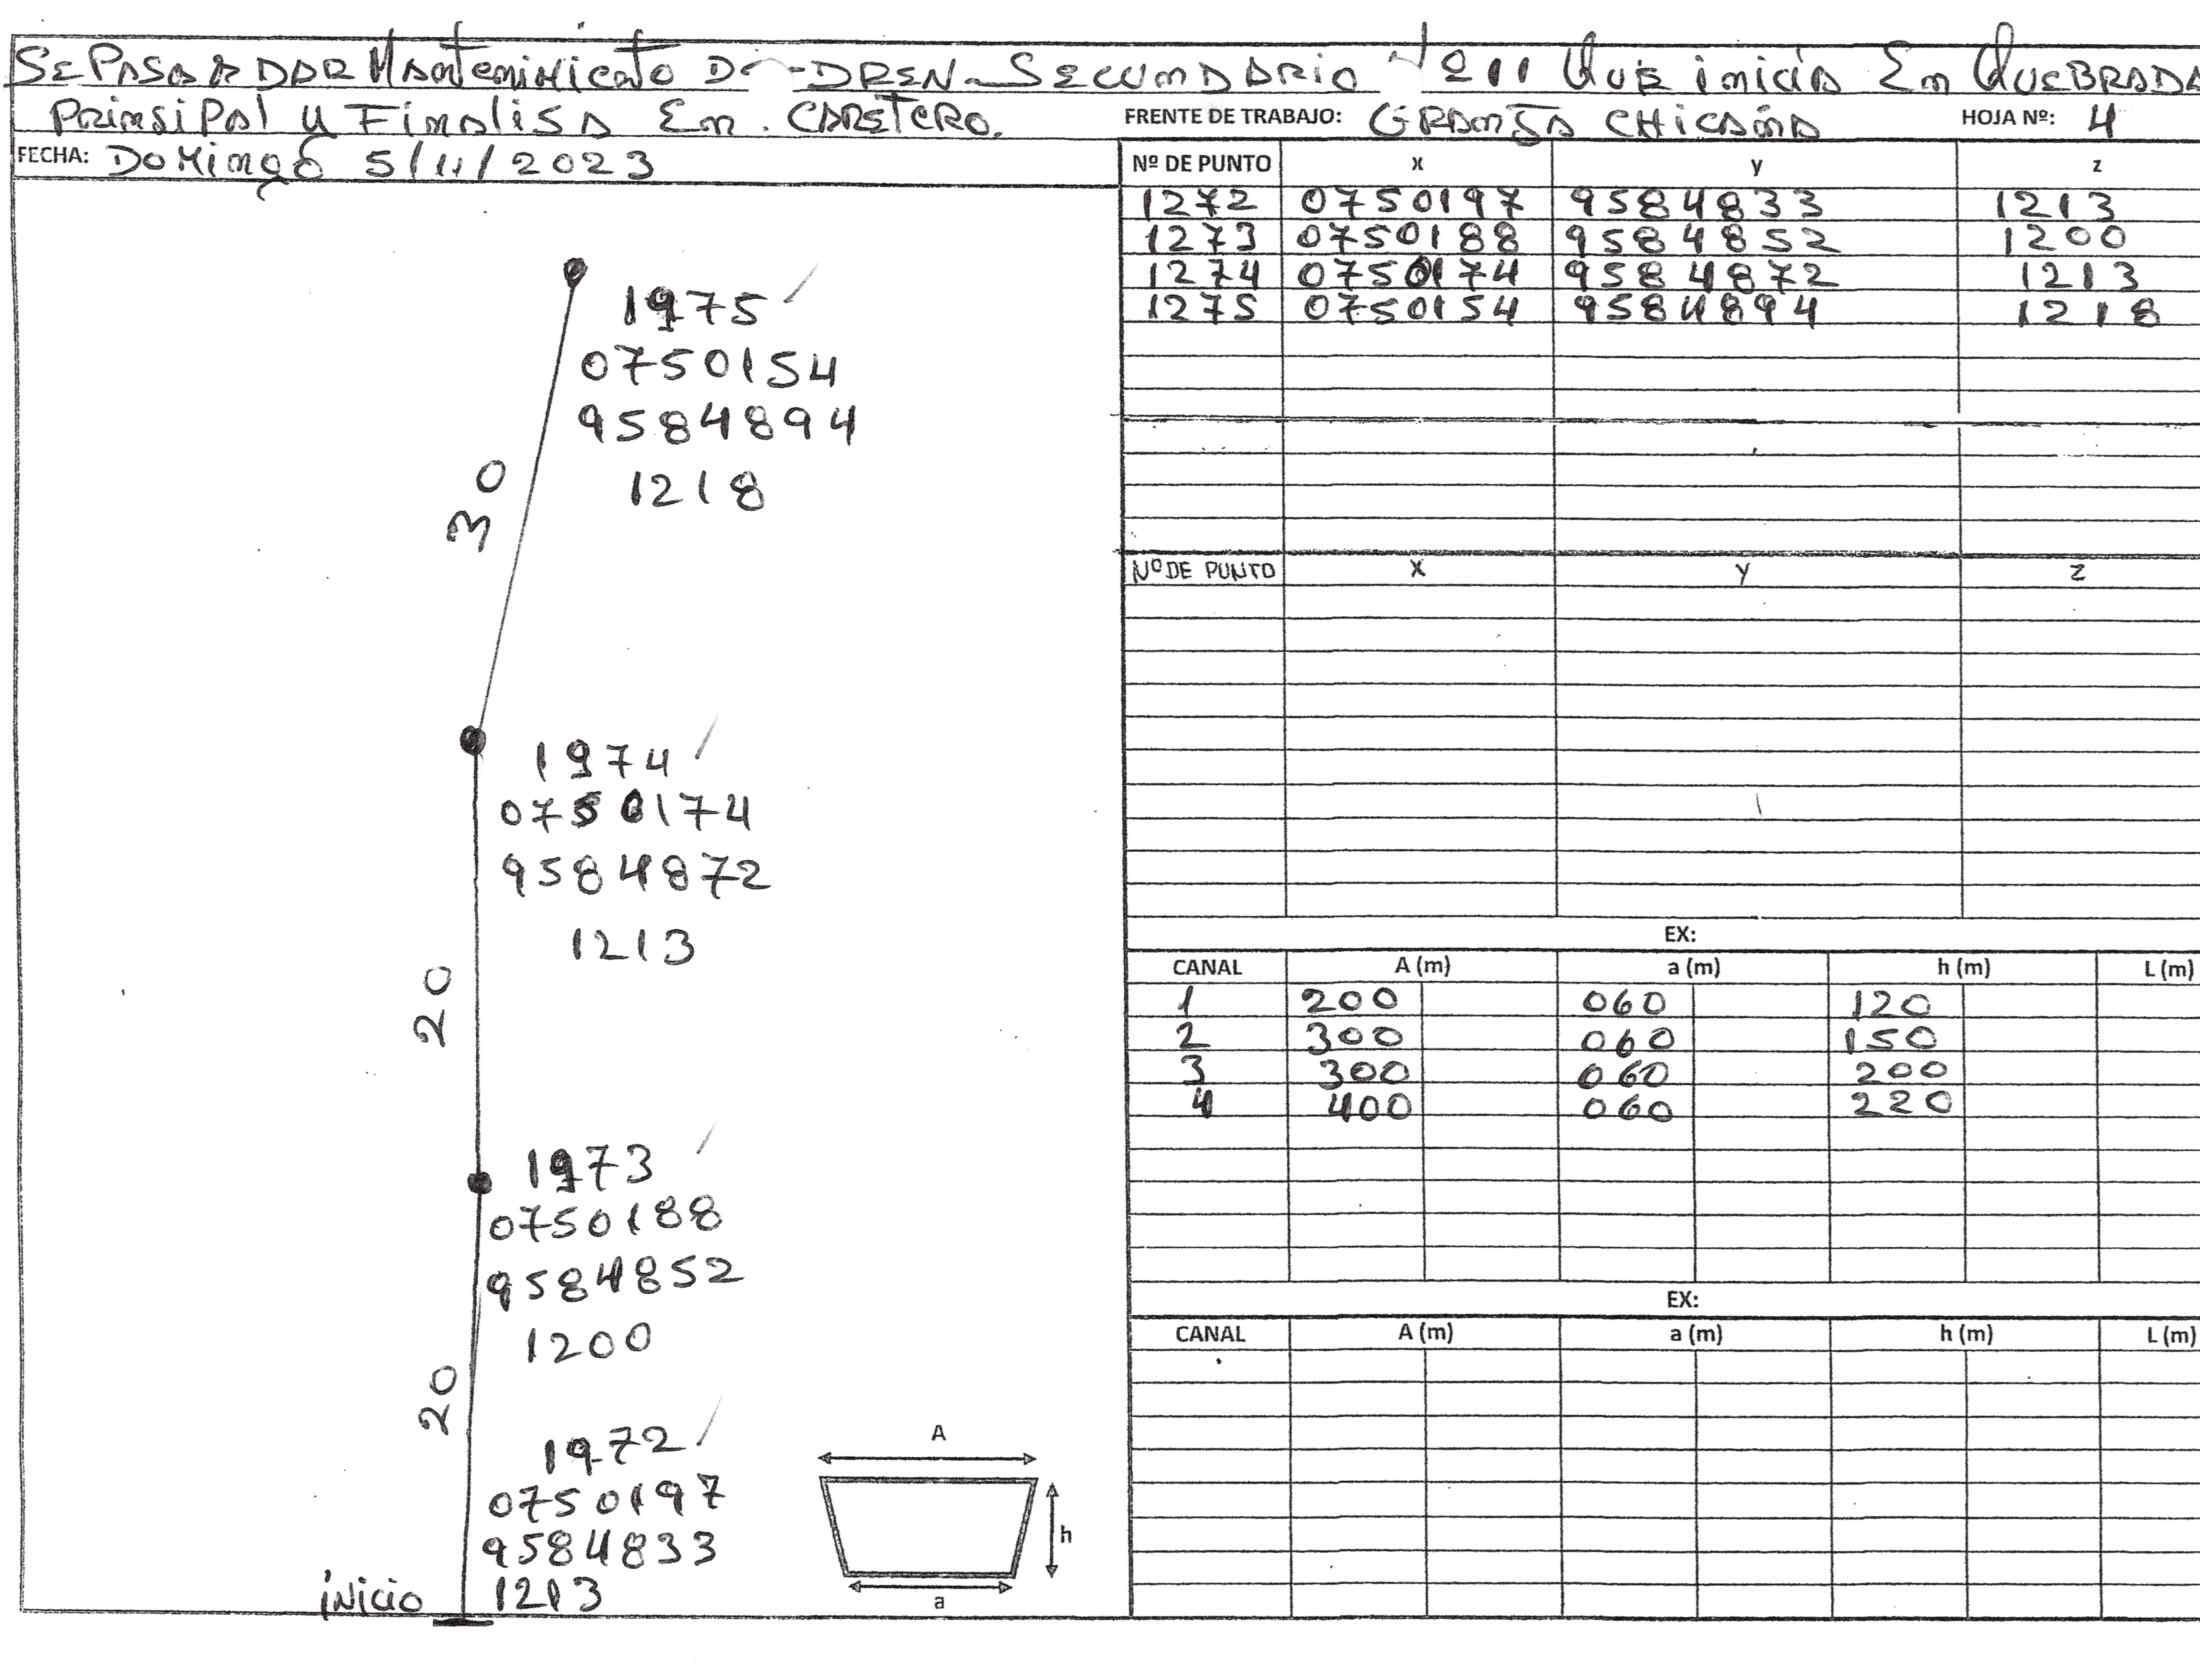 SE PASO A DAR Mantenimicnto DE DREN SECUNDARIO Nº 11 QUE inicia En QUEBRADA
PRINSIPAL Y FINALISA En. CARETERO.
FRENTE DE TRABAJO: GRANJA CHICAÑA
HOJA Nº: 4
FECHA: DOMINGO 5/11/2023
Nº DE PUNTO x y z
1272 0750197 9584833 1213
1273 0750188 9584852 1200
1274 0750174 9584872 1213
1275 0750154 9584894 1218
1975
0750154
9584894
1218
30
1974
0750174
9584872
1213
20
1973
0750188
9584852
1200
20
1972
0750197
9584833
1213
inicio
A
h
a
Nº DE PUNTO X Y Z
EX:
CANAL A (m) a (m) h (m) L (m)
1 200 060 120
2 300 060 150
3 300 060 200
4 400 060 220
EX:
CANAL A (m) a (m) h (m) L (m)